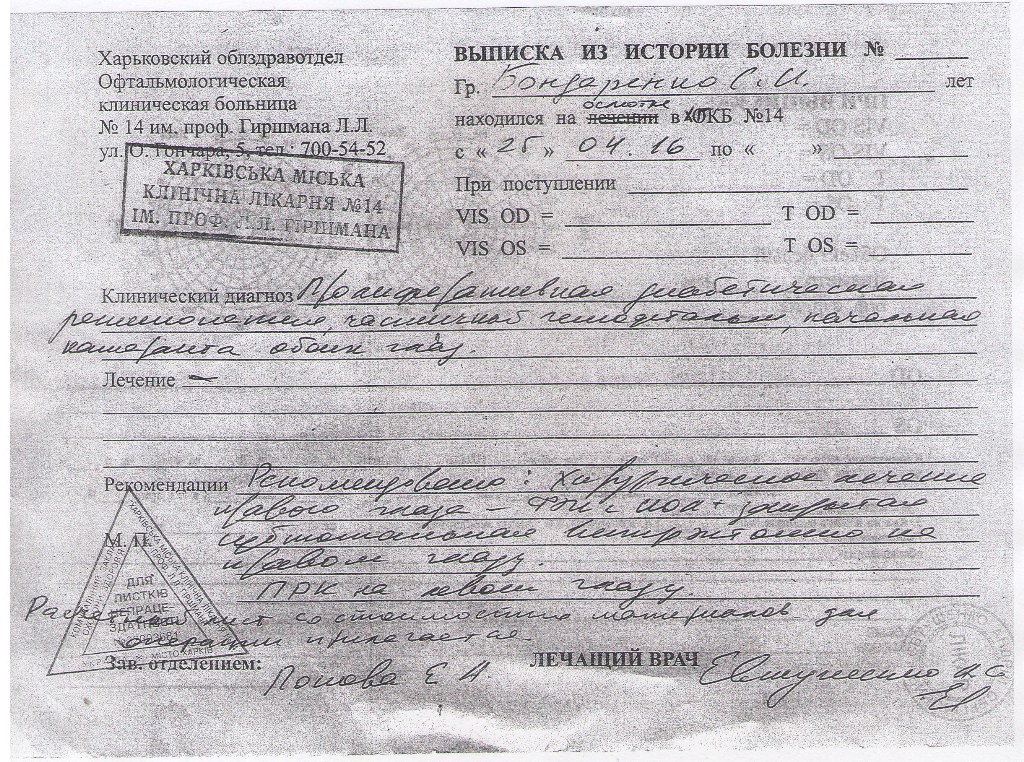 Харьковский облздравотдел
Офтальмологическая
клиническая больница
№ 14 им. проф. Гиршмана Л.Л.
ул. О. Гончара, 5, тел.: 700-54-52
ХАРКІВСЬКА МІСЬКА
КЛІНІЧНА ЛІКАРНЯ №14
ІМ. ПРОФ. Л.Л. ГІРШМАНА
ВЫПИСКА ИЗ ИСТОРИИ БОЛЕЗНИ №
Гр. Бондаренко С.И. лет
осмотре
находился на лечении в ОКБ №14
с « 25 » 04.16 по « »
При поступлении
VIS OD = T OD =
VIS OS = T OS =
Клинический диагноз Пролиферативная диабетическая
ретинопатия, частичный гемофтальм, начальная
катаракта обоих глаз.
Лечение –
Рекомендации Рекомендовано: Хирургическое лечение
правого глаза – ФЭК с ИОЛ + закрытая
субтотальная витрэктомия на
правом глазу.
М. П.
ПРК на левом глазу.
ДЛЯ
ЛИСТКІВ
НЕПРАЦЕ-
Расчетный лист со стоимостью материалов для
операции прилагается.
Зав. отделением: Попова Е. Н.
ЛЕЧАЩИЙ ВРАЧ